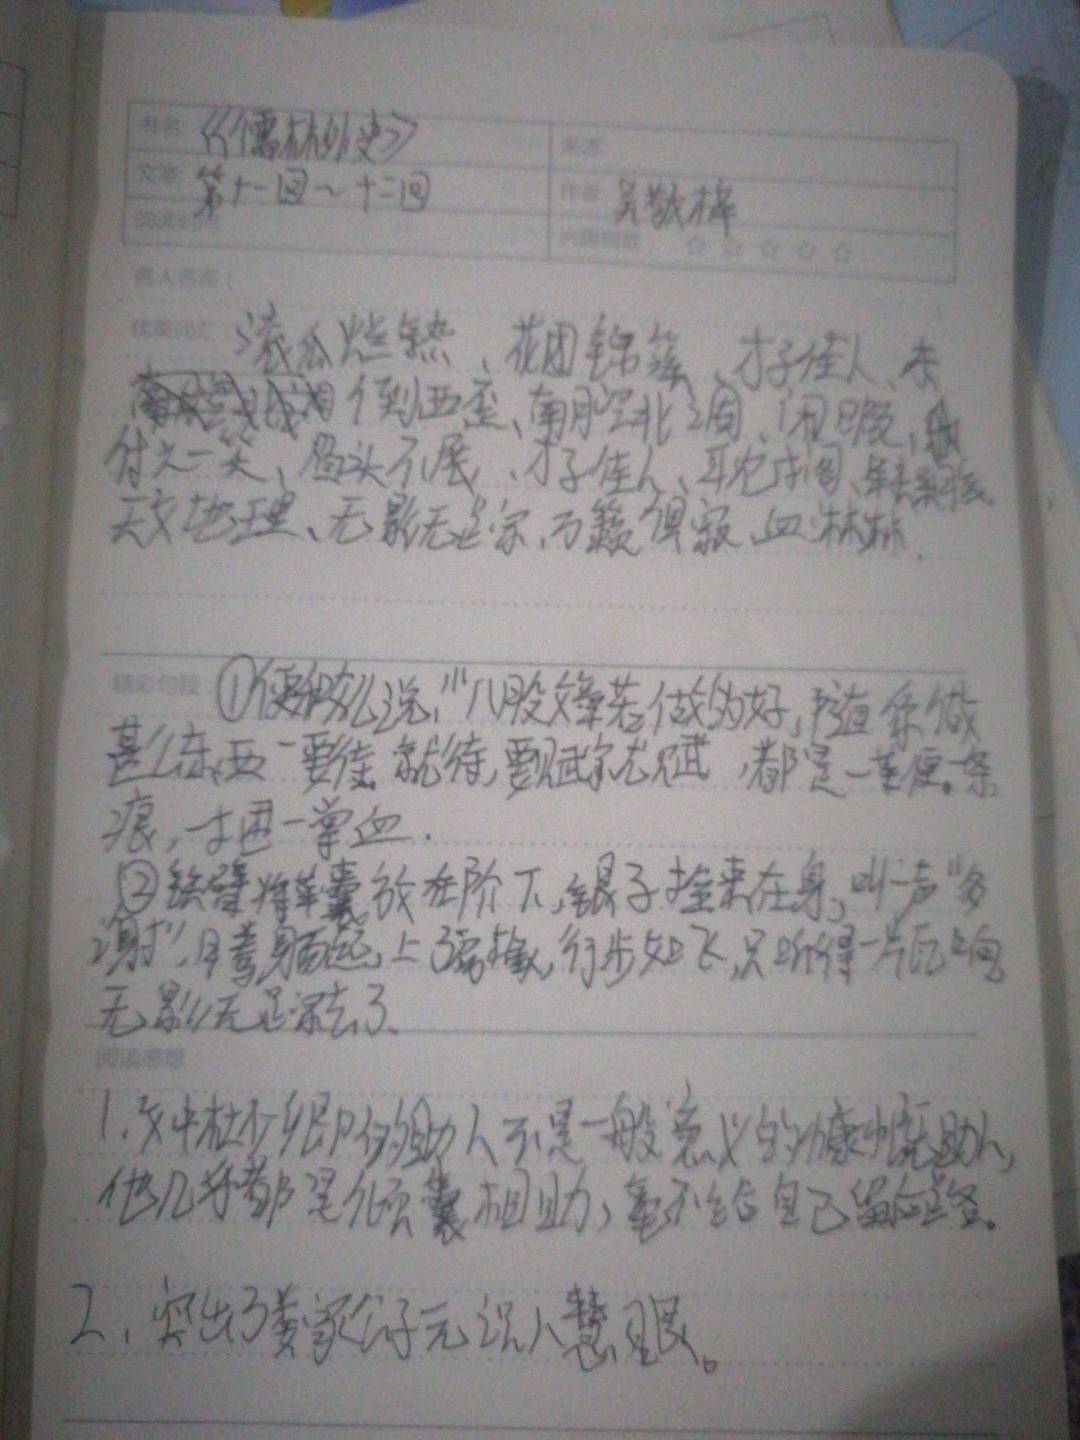 书名: 《儒林外史》
文章: 第十一回～十二回
作者: 吴敬梓
阅读时间
兴趣指数: ☆☆☆☆☆
名人名言:
优美词汇: 滚瓜烂熟、花团锦簇、才子佳人、未
倒西歪、南腔北调、闲暇、
付之一笑、眉头不展、才子佳人、
天文地理、无影无踪、万籁俱寂、血淋淋.
精彩句段: ①便教说,"八股文章若做的好,随你做
甚么东西 要诗就诗,要赋就赋,都是一鞭一条
痕,一掴一掌血.
②铁臂将革囊放在阶下,银子拴束在身,叫一声"多
谢",腾身而起,上了房檐,行步如飞,只听得一片瓦响
无影无踪去了、
阅读感想:
1、文中杜少卿的助人不是一般意义的慷慨助人,
他几乎都是倾囊相助,毫不给自己留后路。
2、突出了娄家公子无识人慧眼。